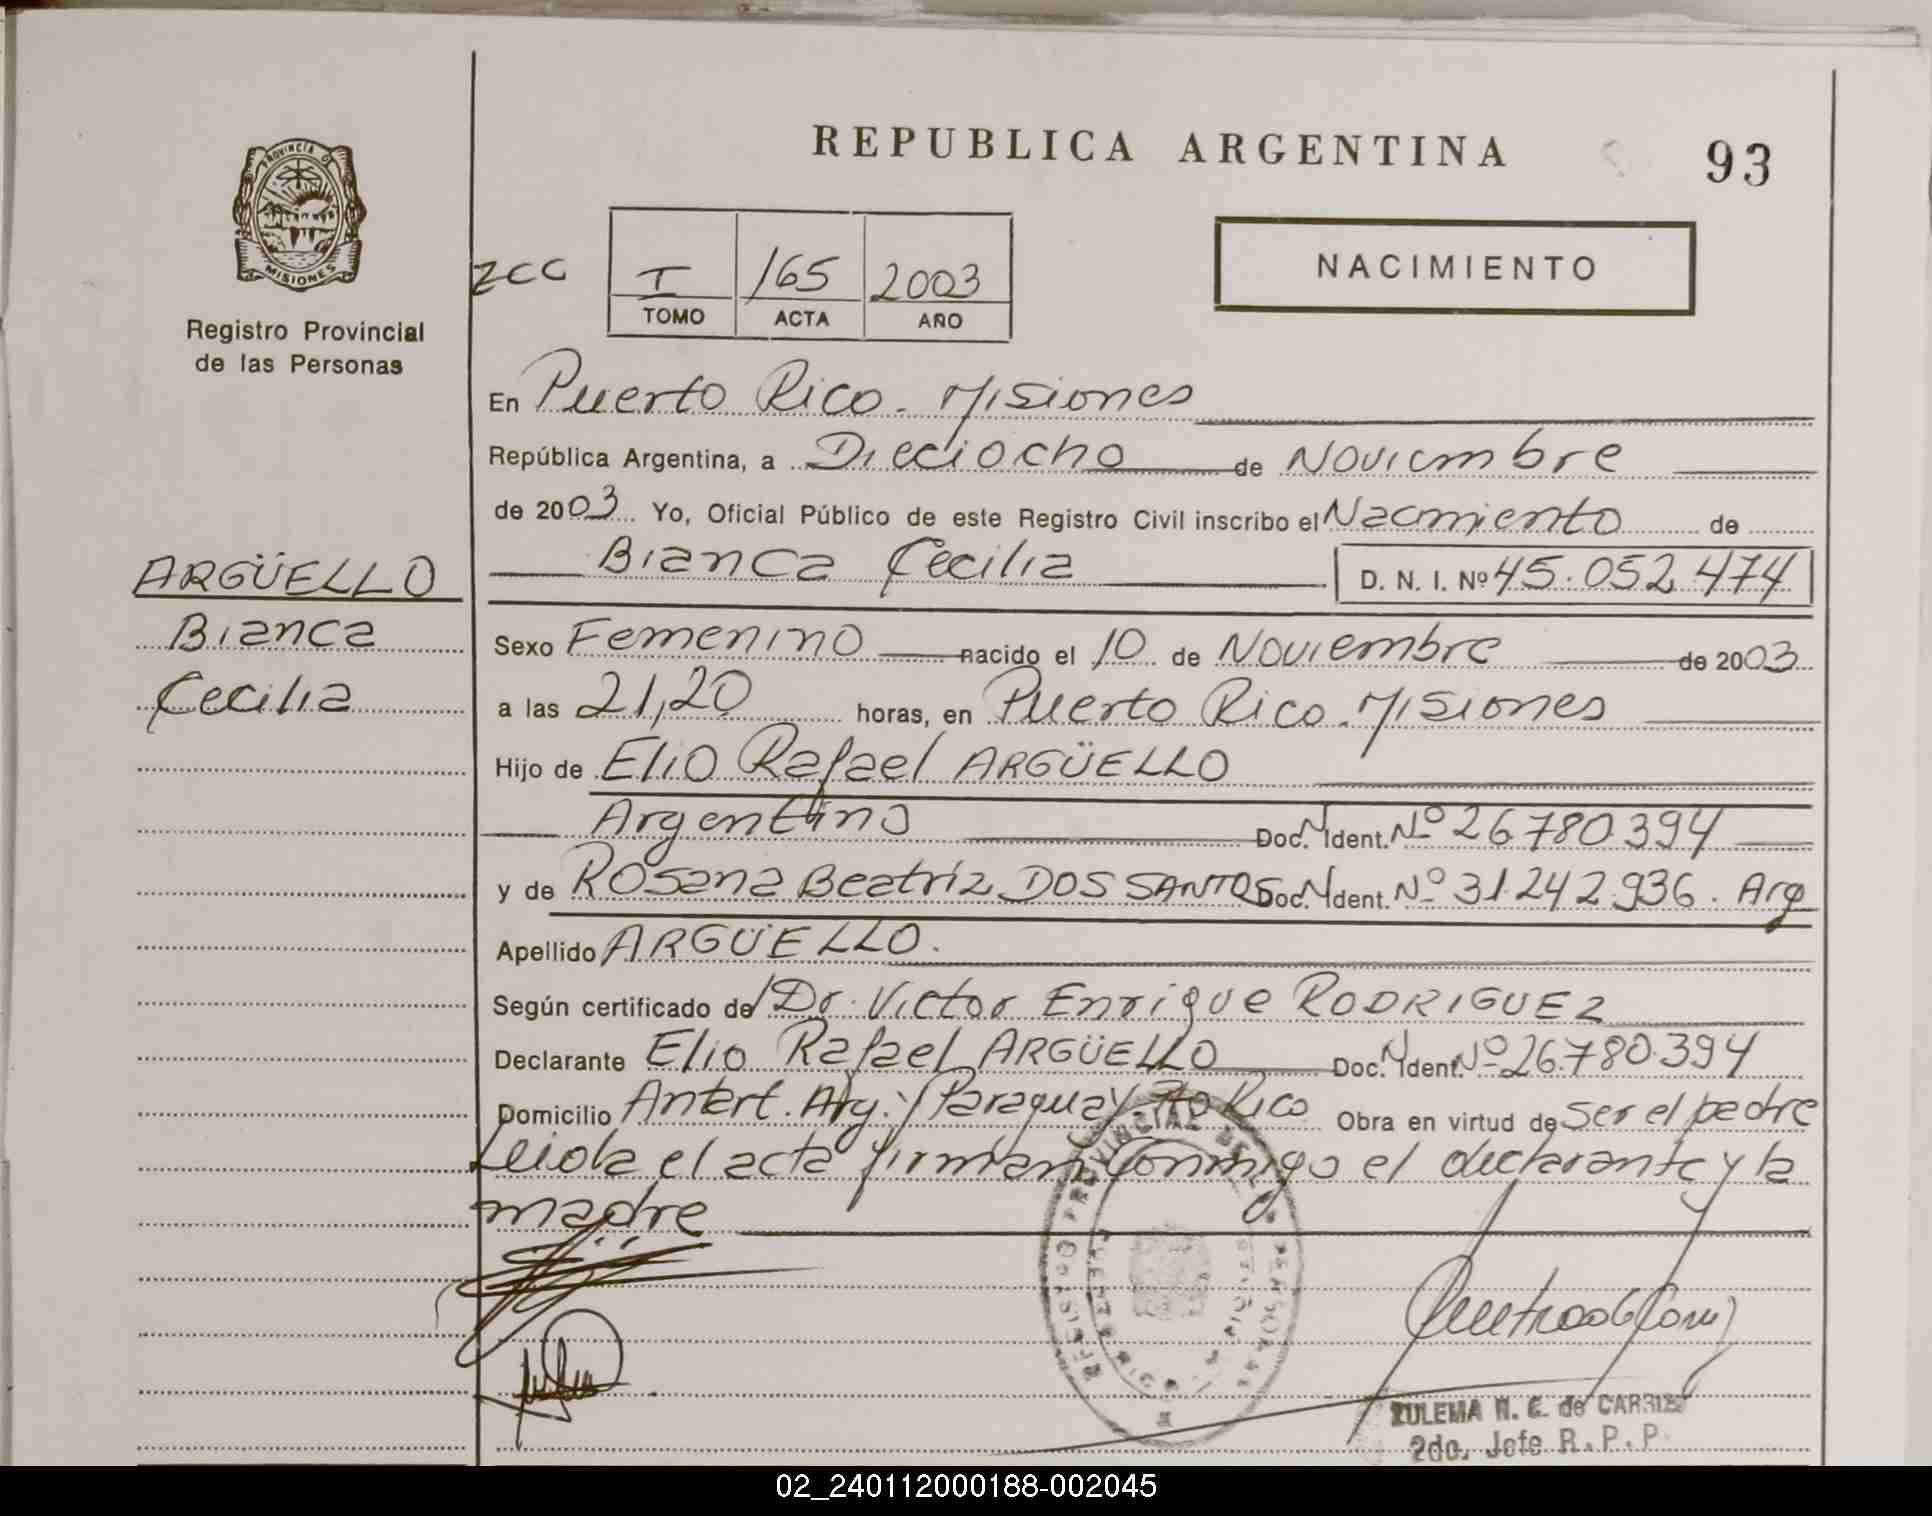 REPUBLICA ARGENTINA
93
PROVINCIA DE
MISIONES
Registro Provincial
de las Personas
ZCC
I 165 2003
TOMO ACTA AÑO
NACIMIENTO
En Puerto Rico. Misiones
República Argentina, a Dieciocho de Noviembre
de 2003 Yo, Oficial Público de este Registro Civil inscribo el Nacimiento de
Bianca Cecilia D. N. I. Nº 45.052.474
ARGÜELLO
Bianca
Cecilia
Sexo Femenino nacido el 10 de Noviembre de 2003
a las 21,20 horas, en Puerto Rico. Misiones
Hijo de Elio Rafael ARGÜELLO
Argentino Doc. N Ident. Nº 26.780.394
y de Rosana Beatríz DOS SANTOS Doc. N Ident. Nº 31.242.936. Arg
Apellido ARGÜELLO.
Según certificado de/ Dr. Victor Enrique RODRIGUEZ
Declarante Elio Rafael ARGÜELLO Doc. N Ident. Nº 26.780.394
Domicilio Antart. Arg. y Paraguay. Pto Rico Obra en virtud de ser el padre
Leida el acta firman conmigo el declarante y la
madre
REGISTRO PROVINCIAL DE LAS PERSONAS
PUERTO RICO
ZULEMA N. C. de
2do. Jefe R.P.P.
02_240112000188-002045